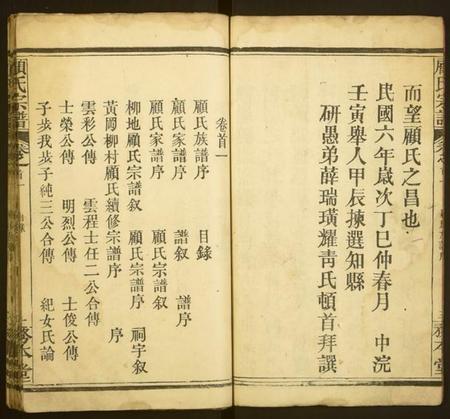 而望顧氏之昌也
民國六年嵗次丁巳仲春月 中浣
壬寅舉人甲辰揀選知縣
研愚弟薛瑞璜耀靑氏頓首拜譔
顧氏宗譜
務本堂
卷首一
顧氏族譜序 目錄
顧氏家譜序 譜叙 譜序
顧氏家譜序 顧氏宗譜序
柳地顧氏宗譜叙 顧氏宗譜序 祠宇叙
黃岡柳村顧氏續修宗譜序 序
雲彩公傳 雲程士任二公合傳
士榮公傳 明烈公傳 士俊公傳
子步我步子純三公合傳 紀女氏論
顧氏宗譜
務本堂